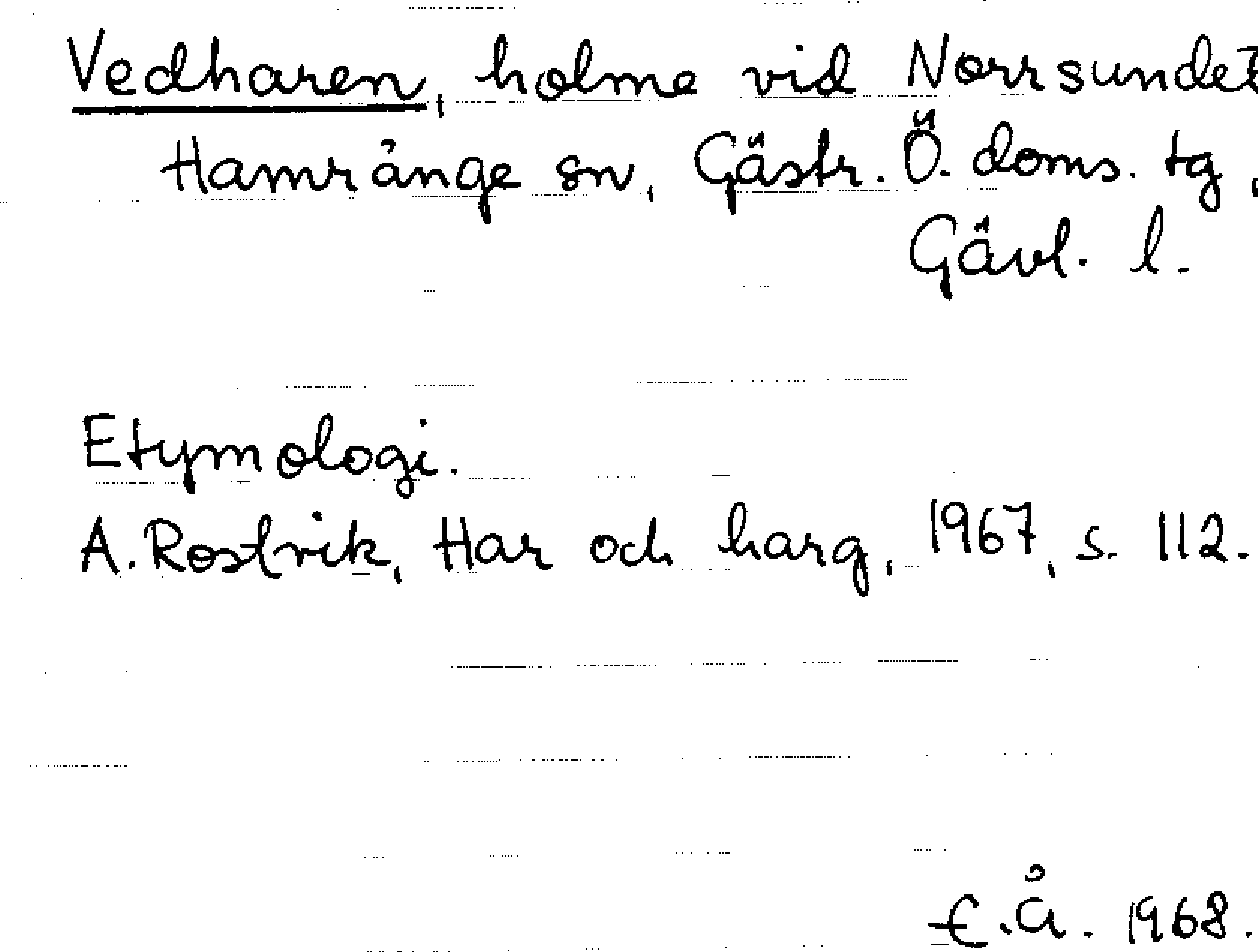 Vedharen, holme vid Norrsundet
Hamrånge sn, Gästr. Ö. doms. tg,
Gävl. l.
Etymologi.
A. Rostvik, Har och harg, 1967, s. 112.
E.Å. 1968.